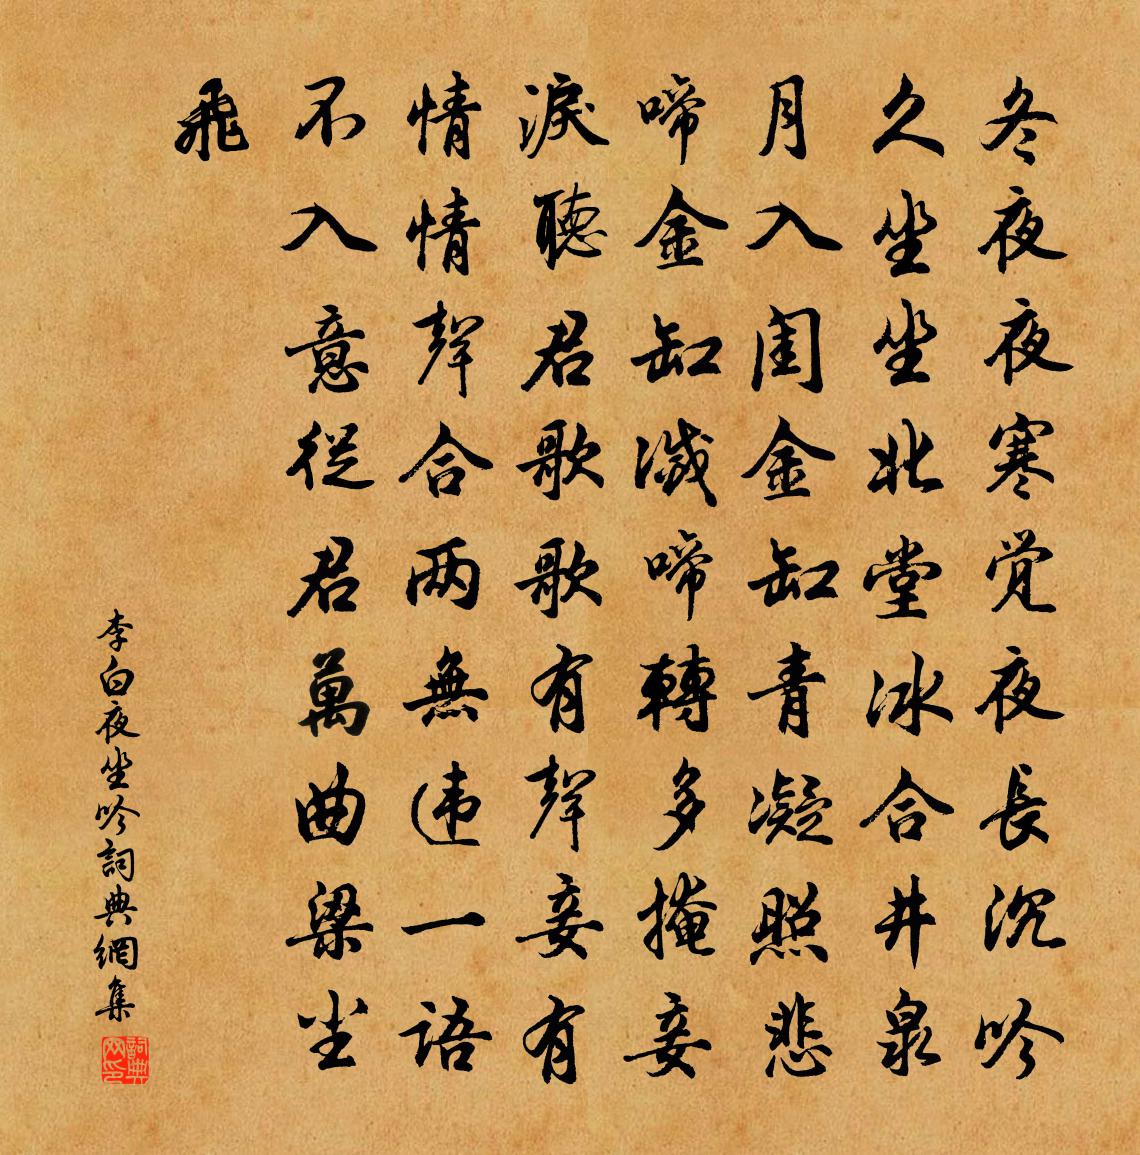 冬夜夜寒觉夜長沉吟
久坐坐北堂冰合井泉
月入闺金缸青凝照悲
啼金缸滅啼轉多掩妾
淚聽君歌歌有聲妾有
情情聲合两無违一語
不入意從君萬曲梁尘
飛
李白夜坐吟詞典網集
詞典网印